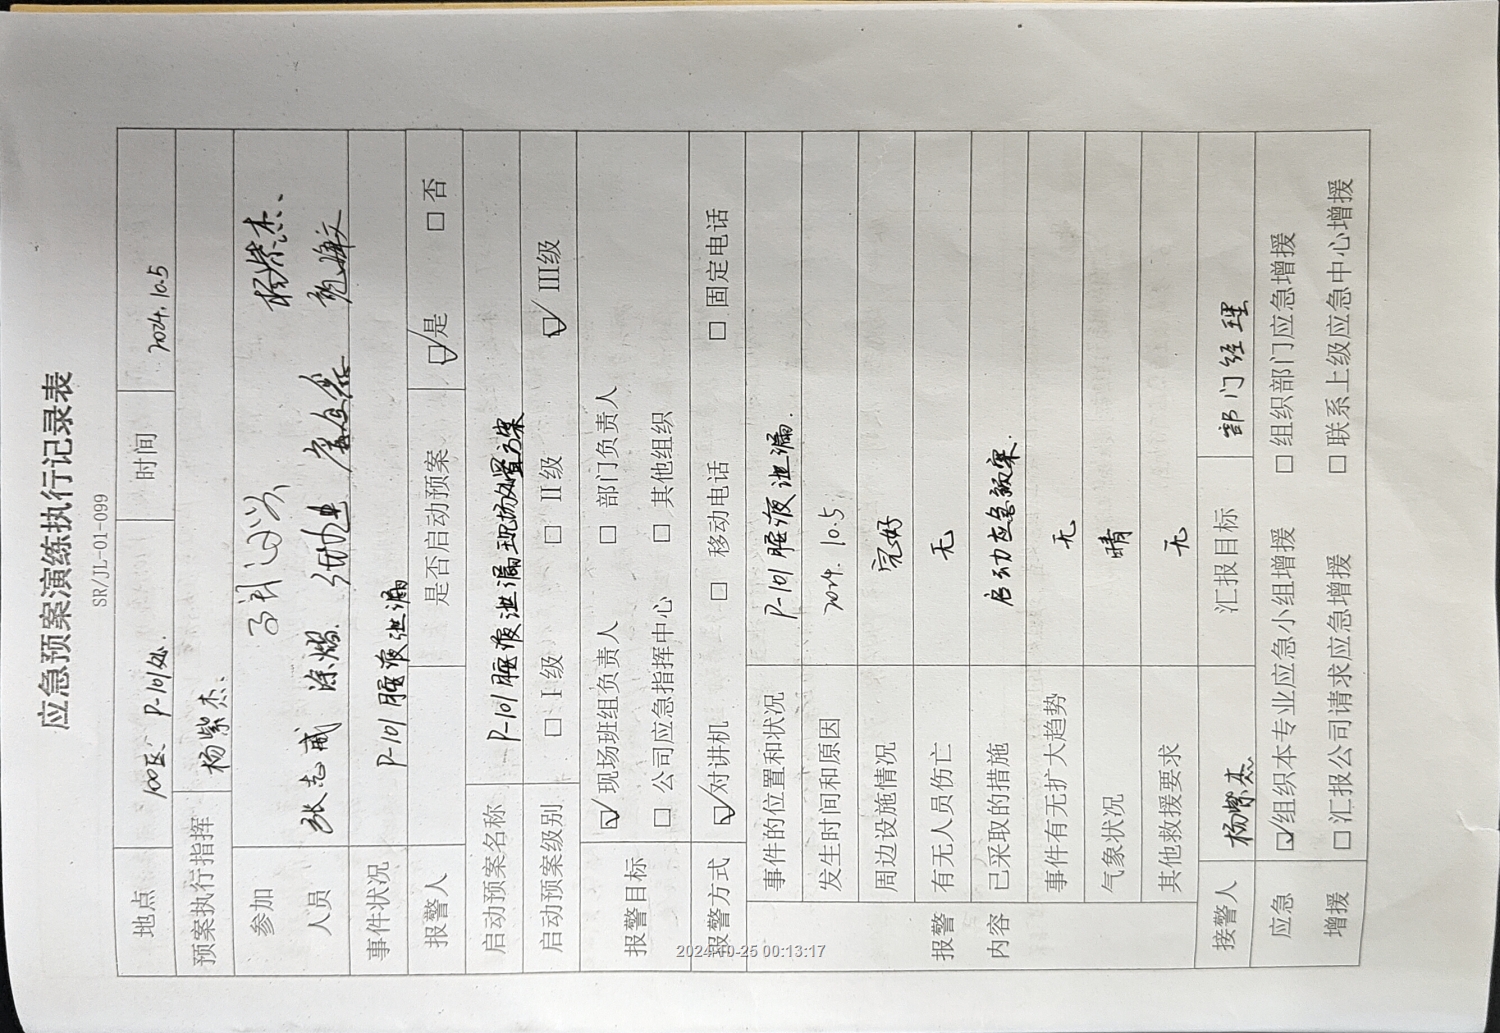 应急预案演练执行记录表
SR/JL-01-099
地点 100区 P-101处. 时间 2024.10.5
预案执行指挥 杨紫杰
参加 杨紫杰、
人员 张志武 涂熠
事件状况 P-101胺液泄漏
报警人 是否启动预案 ☑是 □否
启动预案名称 P-101胺液泄漏现场处置方案
启动预案级别 □ I级 □ II级 ☑ III级
报警目标 ☑现场班组负责人 □ 部门负责人
□ 公司应急指挥中心 □ 其他组织
报警方式 ☑对讲机 □ 移动电话 □ 固定电话
报警
内容
事件的位置和状况 P-101胺液泄漏.
发生时间和原因 2024.10.5
周边设施情况 完好
有无人员伤亡 无
已采取的措施 启动应急预案.
事件有无扩大趋势 无
气象状况 晴
其他救援要求 无
接警人 杨紫杰 汇报目标 部门经理
应急 ☑组织本专业应急小组增援 □ 组织部门应急增援
增援 □ 汇报公司请求应急增援 □ 联系上级应急中心增援
2024-10-25 00:13:17